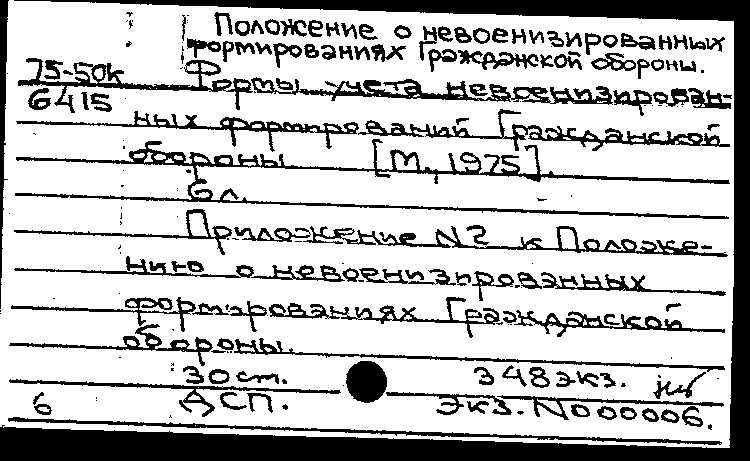 Положение о невоенизированных
формированиях Гражданской обороны.
75-50к Формы учета невоенизирован-
6415 ных формирований Гражданской
обороны. [М., 1975].
6 л.
Приложение N2 к Положе-
нию о невоенизированных
формированиях Гражданской
обороны.
30 ст. 348 экз.
6 ДСП. Экз. N000006.